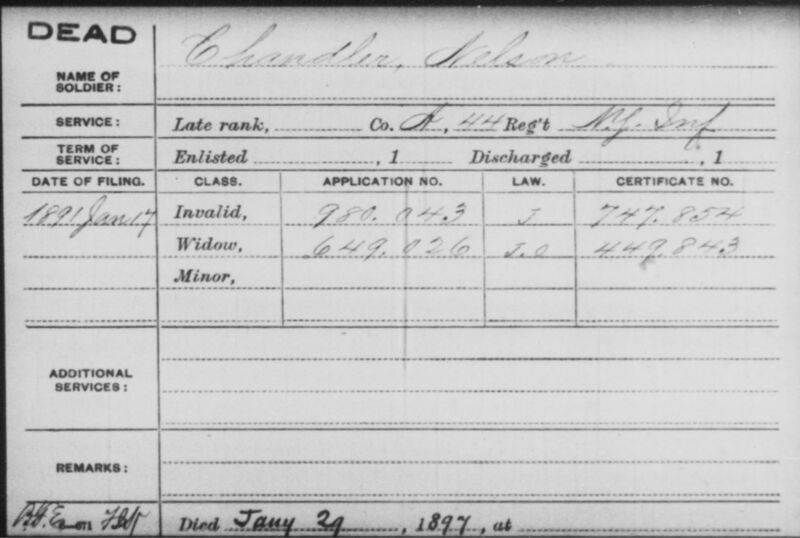 DEAD
NAME OF SOLDIER: Chandler, Nelson
SERVICE: Late rank, Co. A, 44 Reg't N.Y. Inf
TERM OF SERVICE: Enlisted , 1 Discharged , 1
DATE OF FILING. CLASS. APPLICATION NO. LAW. CERTIFICATE NO.
1891 Jan 17 Invalid, 980.043 J 747.854
Widow, 649.026 J.O 449.843
Minor,
ADDITIONAL SERVICES:
REMARKS:
Died Jany 29, 1897, at